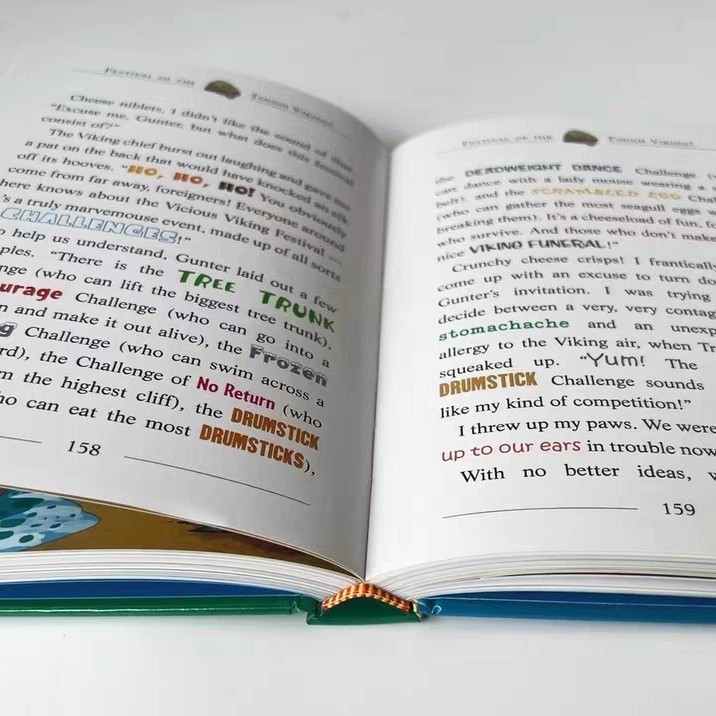 FESTIVAL OF THE TOUGH VIKINGS!
Cheese niblets, I didn't like the sound of that.
"Excuse me, Gunter, but what does this festival
consist of?"
The Viking chief burst out laughing and gave me
a pat on the back that would have knocked an elk
off its hooves. "HO, HO, HO! You obviously
come from far away, foreigners! Everyone around
here knows about the Vicious Viking Festival —
's a truly marvemouse event, made up of all sorts
CHALLENGES!"
o help us understand, Gunter laid out a few
ples. "There is the TREE TRUNK
nge (who can lift the biggest tree trunk),
urage Challenge (who can go into a
n and make it out alive), the Frozen
g Challenge (who can swim across a
rd), the Challenge of No Return (who
m the highest cliff), the DRUMSTICK
ho can eat the most DRUMSTICKS),
158
FESTIVAL OF THE TOUGH VIKINGS!
the DEADWEIGHT DANCE Challenge (w
can dance with a lady mouse wearing a s
belt), and the SCRAMBLED EGG Chal
(who can gather the most seagull eggs w
breaking them). It's a cheeseload of fun, fo
who survive. And those who don't make
nice VIKING FUNERAL!"
Crunchy cheese crisps! I frantically
come up with an excuse to turn do
Gunter's invitation. I was trying
decide between a very, very contag
stomachache and an unexp
allergy to the Viking air, when Tr
squeaked up. "Yum! The
DRUMSTICK Challenge sounds
like my kind of competition!"
I threw up my paws. We were
up to our ears in trouble now
With no better ideas, w
159